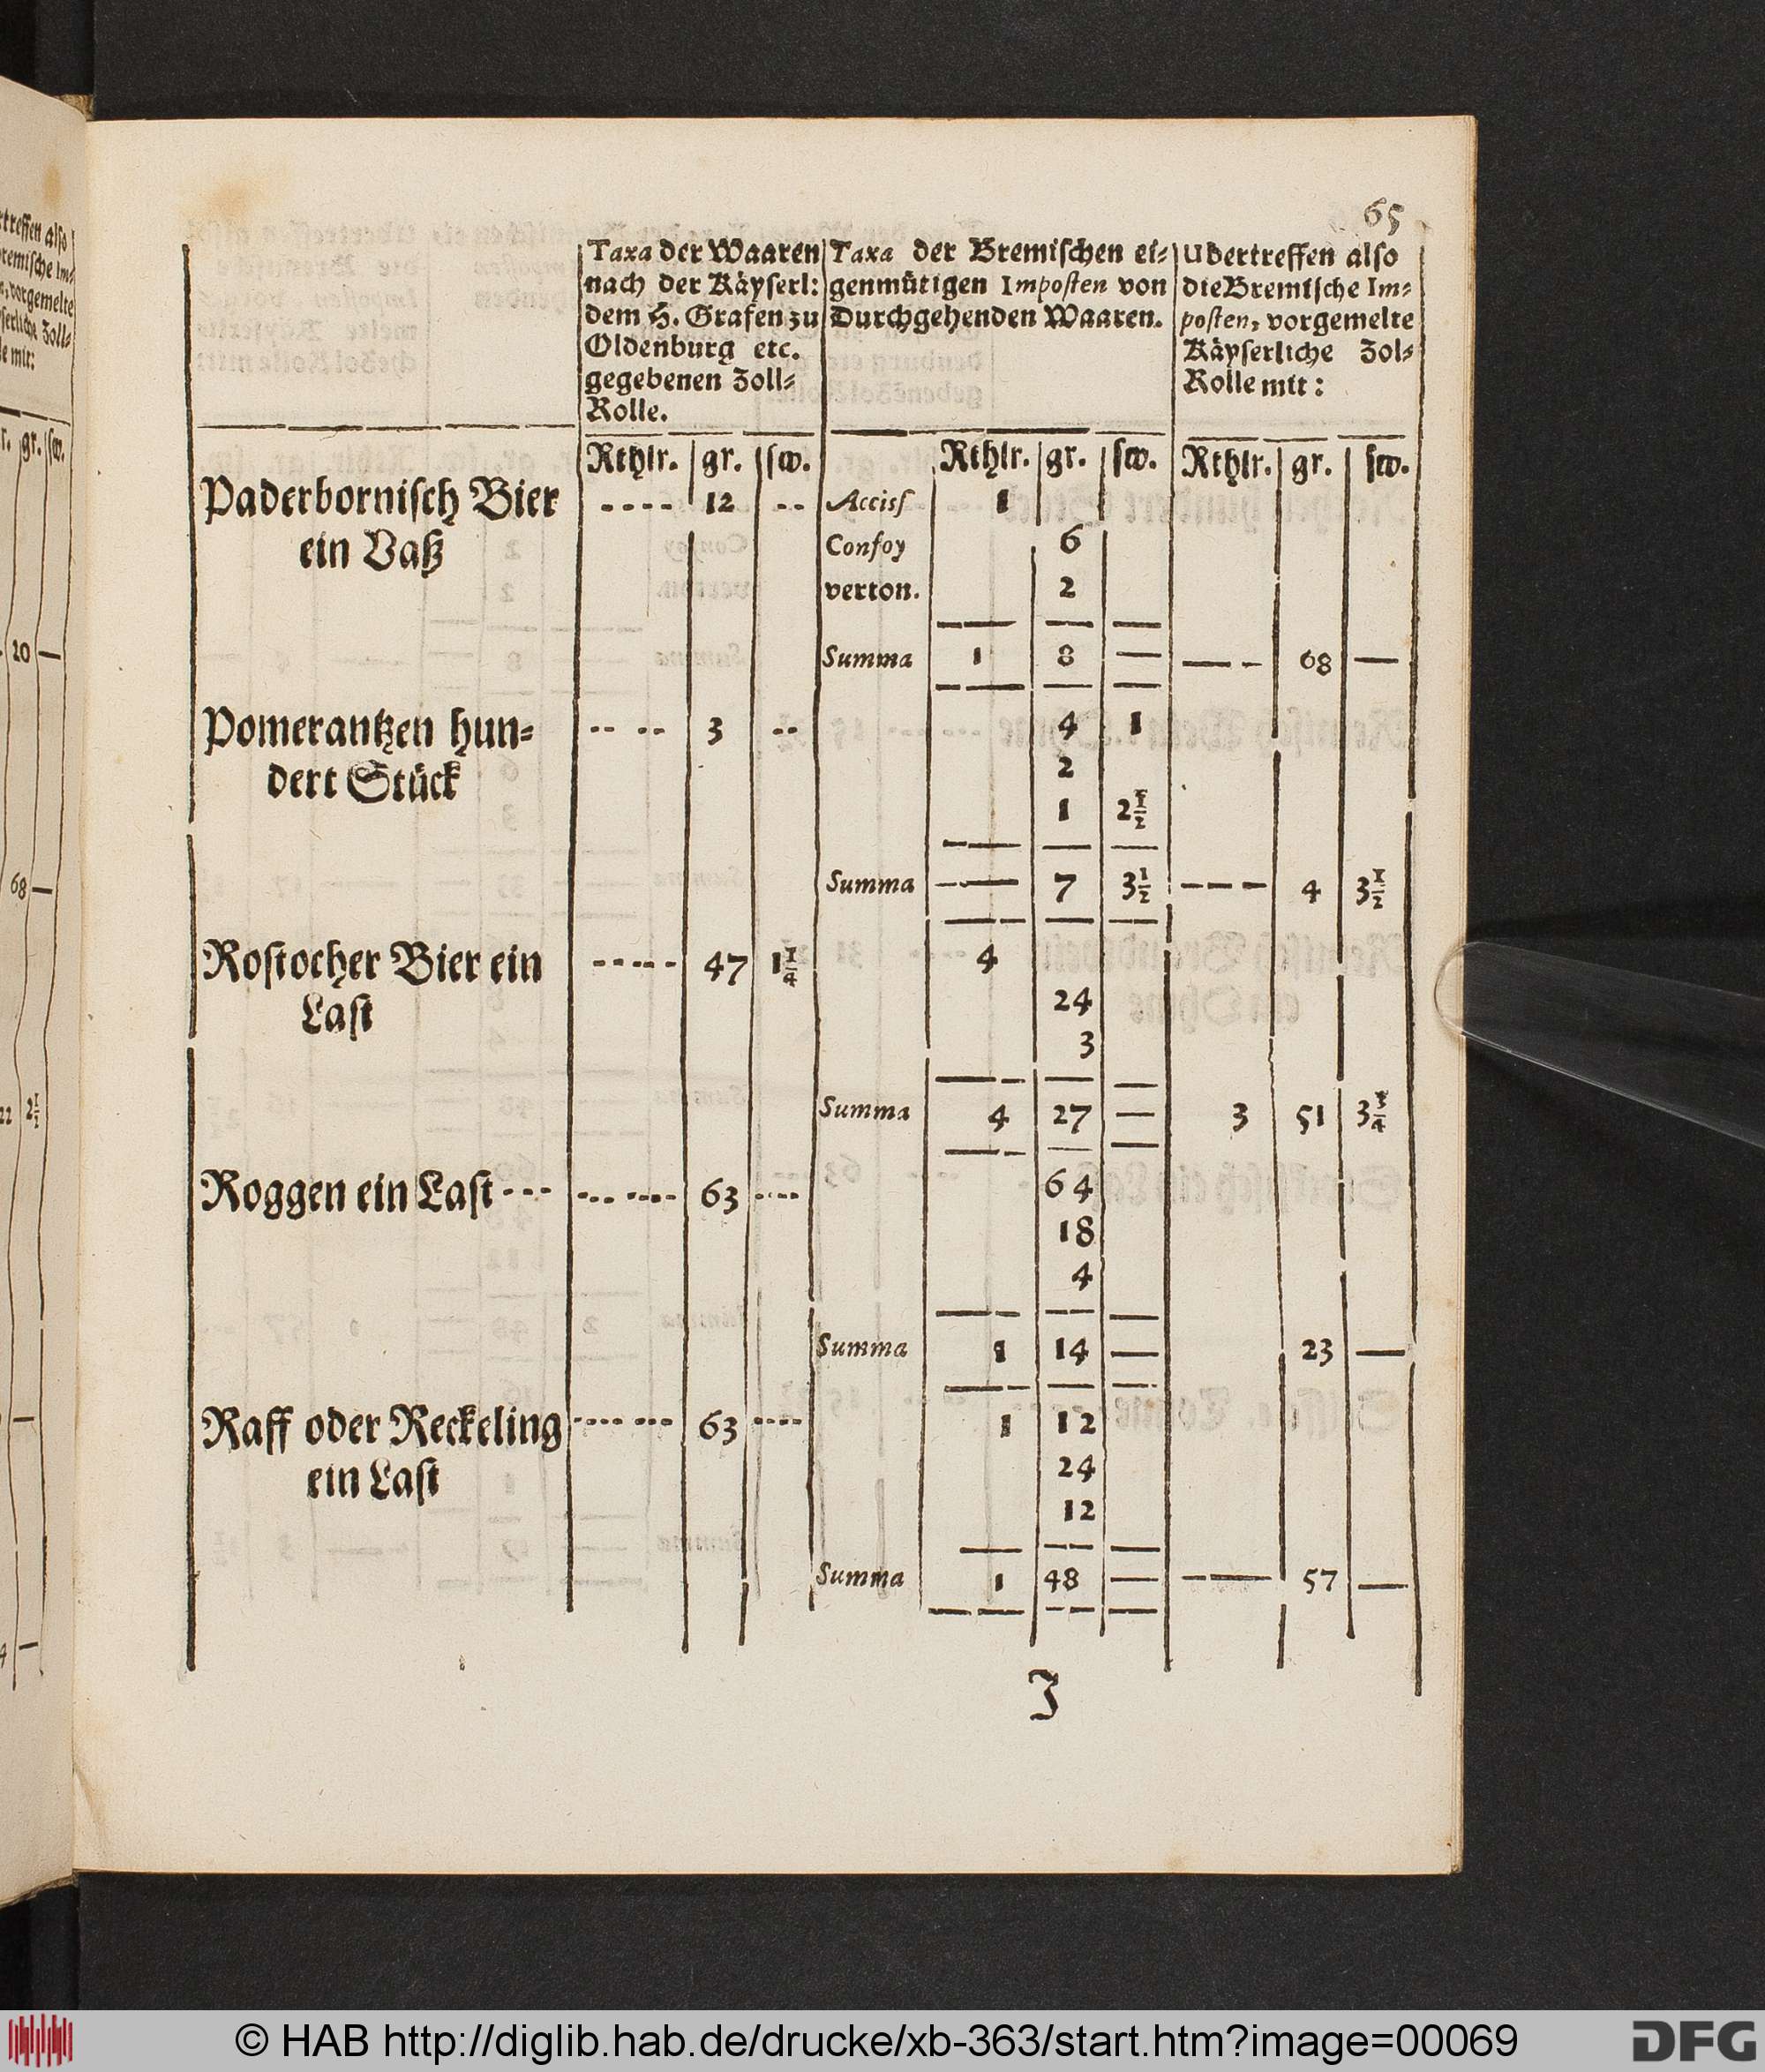 65
Taxa der Waaren nach der Käyserl: dem H. Grafen zu Oldenburg etc. gegebenen Zoll= Rolle.
Taxa der Bremischen ei= genmütigen Imposten von Durchgehenden Waaren.
Ubertreffen also die Bremische Im= posten, vorgemelte Käyserliche Zol= Rolle mit:
Rthlr. gr. sw. Rthlr. gr. sw. Rthlr. gr. sw.
Paderbornisch Bier ---- 12 -- Acciss 1
ein Vaß Confoy 6
verton. 2
Summa 1 8 — — - 68 —
Pomerantzen hun= -- -- 3 -- 4 1
dert Stück 2
1 2 1/2
Summa -— 7 3 1/2 --- 4 3 1/2
Rostocher Bier ein ----- 47 1 1/4 4
Last 24
3
Summa 4 27 — 3 51 3 3/4
Roggen ein Last --- --- ---- 63 ---- 64
18
4
Summa 1 14 — 23 —
Raff oder Reckeling ---- --- 63 ---- 1 12
ein Last 24
12
Summa 1 48 — -— 57 —
J
rtreffen also
remische Im=
n, vorgemelte
serliche Zoll=
le mit:
r. gr. sw.
20 —
68 —
22 2 1/2
—
4 —
© HAB http://diglib.hab.de/drucke/xb-363/start.htm?image=00069
DFG